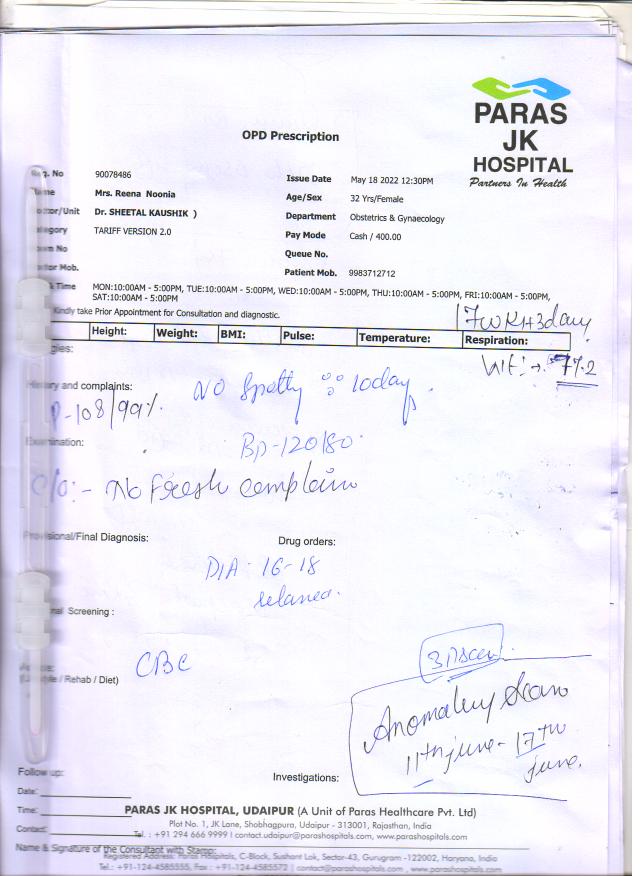 PARAS
JK
HOSPITAL
Partners In Health
OPD Prescription
No 90078486
Issue Date May 18 2022 12:30PM
Mrs. Reena Noonia
Age/Sex 32 Yrs/Female
/Unit Dr. SHEETAL KAUSHIK )
Department Obstetrics & Gynaecology
TARIFF VERSION 2.0
Pay Mode Cash / 400.00
No
Queue No.
Mob.
Patient Mob. 9983712712
Time MON:10:00AM - 5:00PM, TUE:10:00AM - 5:00PM, WED:10:00AM - 5:00PM, THU:10:00AM - 5:00PM, FRI:10:00AM - 5:00PM,
SAT:10:00AM - 5:00PM
Kindly take Prior Appointment for Consultation and diagnostic.
17wk+3day
Height: Weight: BMI: Pulse: Temperature: Respiration:
Wt:→ 77.2
History and complaints:
No today.
P-108/99%.
Examination:
BP-120/80.
C/O:- No Fresh complain
Provisional/Final Diagnosis:
Drug orders:
16-18
Screening :
CBC
/ Rehab / Diet)
Anomaly Scan
11th june - 17th
june.
Follow up:
Investigations:
Date:
Time:
PARAS JK HOSPITAL, UDAIPUR (A Unit of Paras Healthcare Pvt. Ltd)
Plot No. 1, JK Lane, Shobhagpura, Udaipur - 313001, Rajasthan, India
Contact:
Tel. : +91 294 666 9999 | contact.udaipur@parashospitals.com, www.parashospitals.com
Name & Signature of the Consultant with Stamp:
Registered Address: Paras Hospitals, C-Block, Sushant Lok, Sector-43, Gurugram -122002, Haryana, India
Tel.: +91-124-4585555, Fax : +91-124-4585572 | contact@parashospitals.com , www.parashospitals.com